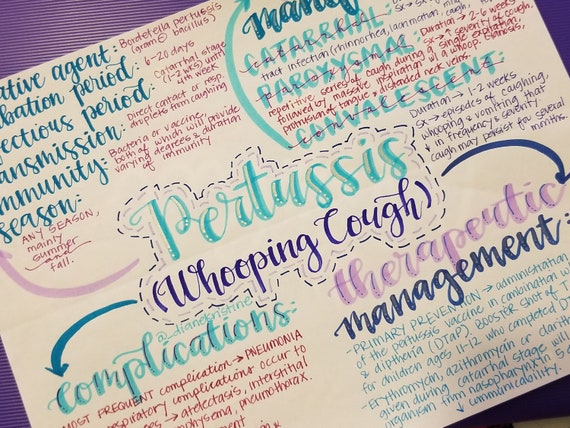 Bordetella pertussis
(gram⊖ bacillus)
ative agent:
6-20 days
bation period:
Catarrhal stage
(1-2 wks) until
4th week.
ectious period:
Direct contact or resp.
droplets from coughing
ansmission:
Bacteria or vaccine,
both of which will provide
varying degrees & duration
of immunity
mmunity:
season:
ANY SEASON,
mainly
summer
and
fall.
CATARRHAL:
tract infection (rhinorrhea, lacrimation, mild
PAROXYSMAL:
Duration → 2-6 weeks
sx → ↑ severity of cough,
repetitive series of cough during a single expiration,
followed by massive inspiration w/ a whoop.
protrusion of tongue & distended neck veins.
CONVALESCENT:
Duration → 1-2 weeks
sx → episodes of coughing,
whooping & vomiting that
↓ in frequency & severity
cough may persist for several
months.
Pertussis
(Whooping Cough)
@_dianekristine
therapeutic
management:
-PRIMARY PREVENTION → administration
of the pertussis vaccine in combination w
& diptheria (DTaP). BOOSTER shot of T
for children ages 11-12 who completed DT
-Erythromycin, azithromycin or clarith
given during catarrhal stage will
organism from nasopharynx in 5 d
↓ communicability.
complications:
MOST FREQUENT complication → PNEUMONIA
respiratory complications occur to
→ atelectasis, interstitial
emphysema, pneumothorax.